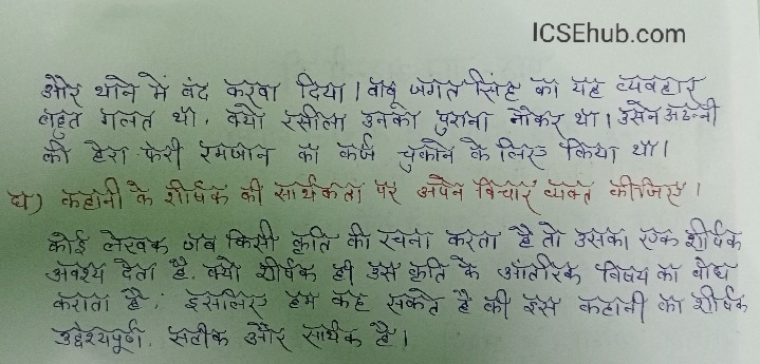 ICSEhub.com
और थाने में बंद करवा दिया। बाबू जगत सिंह का यह व्यवहार
बहुत गलत था, क्यो रसीला उनका पुराना नौकर था। उसने अठन्नी
की हेरा फेरी रमजान का कर्ज चुकाने के लिए किया था।
घ) कहानी के शीर्षक की सार्थकता पर अपने विचार व्यक्त कीजिए।
कोई लेखक जब किसी कृति की रचना करता है तो उसका एक शीर्षक
अवश्य देता है. क्यो शीर्षक ही उस कृति के आंतरिक विषय का बोध
कराता है; इसलिए हम कह सकते है की इस कहानी का शीर्षक
उद्देश्यपूर्ण, सटीक और सार्थक है।